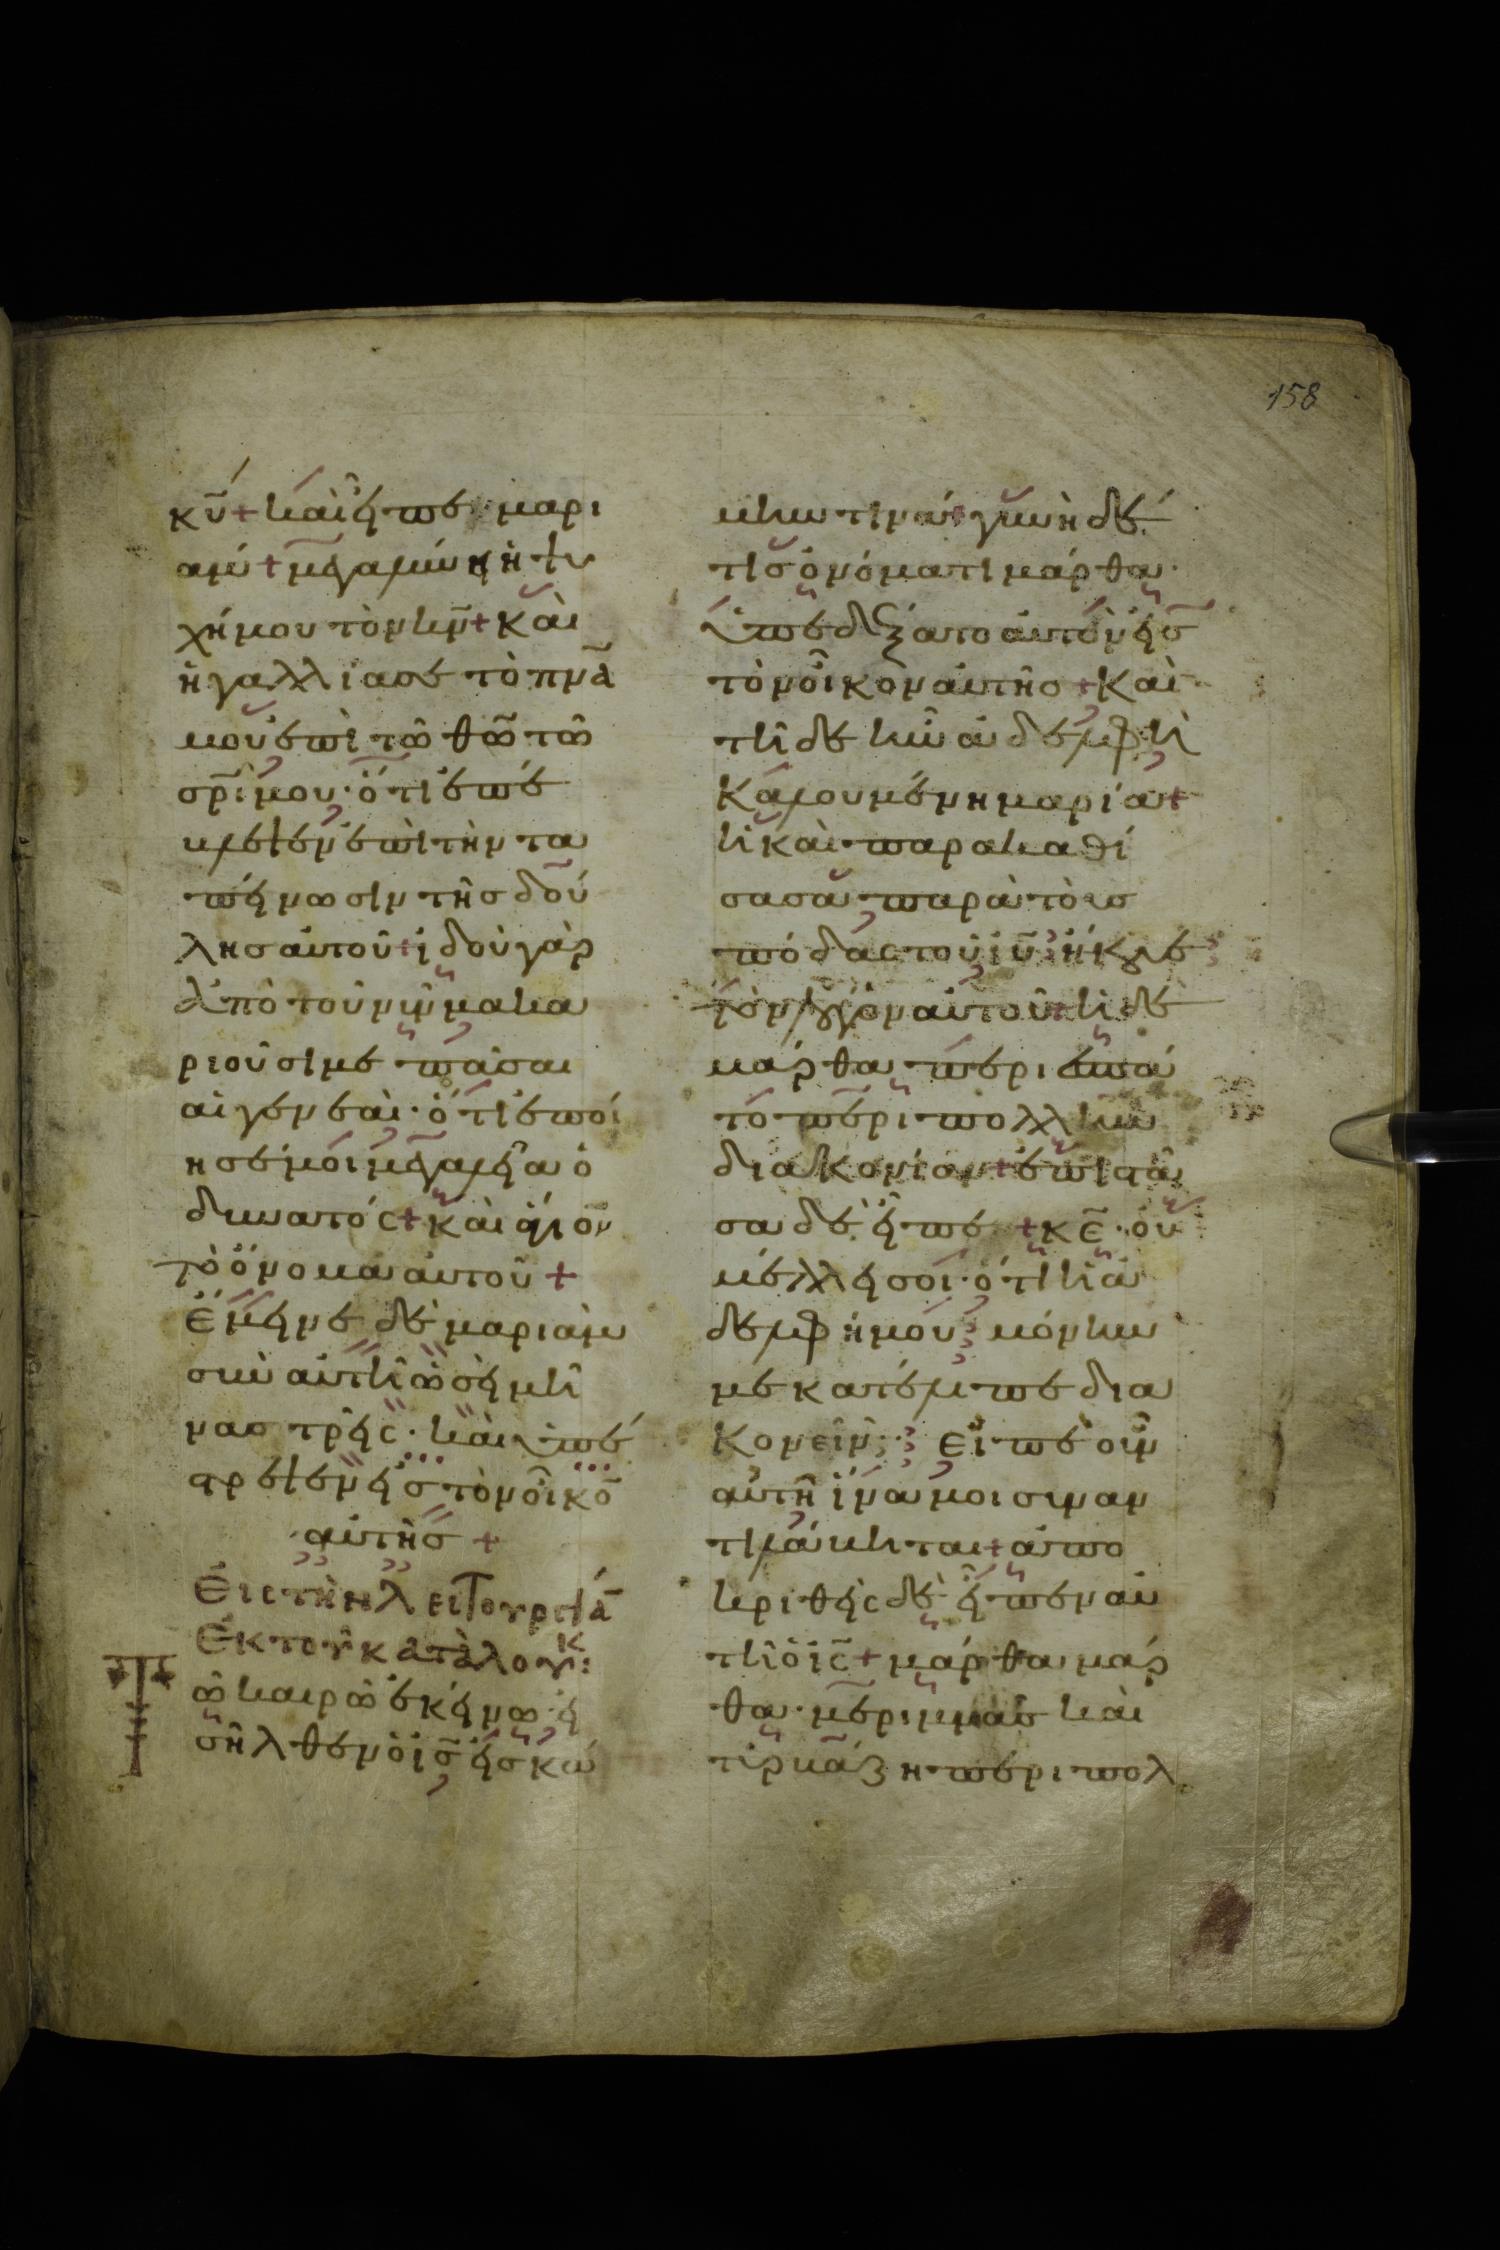 158
κῡ + καὶ εἶπε μαρι
αμ + μεγαλύνει ἡ ψυ
χή μου τὸν κν̄ + καὶ
ἠγαλλίασε τὸ πνᾱ
μου ἐπὶ τῶ θῶ̄ τῶ
σρ̄ί μου · ὅτι ἐπέ
βλεψεν ἐπὶ τὴν τα
πείνωσιν τῆσ δού
λησ αὐτοῦ + ἰδοὺ γὰρ
ἀπὸ τοῦ νῦν μακα
ριοῦσί με πᾶσαι
αἱ γενεαί · ὅτι ἐποί
ησέ μοι μεγαλεῖα ὁ
δυνατός + καὶ ἅγιον
τὸ ὄνομα αὐτοῦ +
Ἔμεινε δὲ μαριὰμ
σὺν αὐτῆ ὡσεὶ μῆ
νασ τρεῖς · καὶ ὑπέ
στρεψεν εἰσ τὸν οἶκο̄
αὐτῆσ +
Εἰς τὴν λειτουργίᾱ
Ἐκ τοῦ κατὰ λουκ :
Τῶ καιρῶ ἐκείνω εἰ
σῆλθεν ὁ ισ̄ εἰσ κώ
μην τινά + γυνὴ δέ
τισ ὀνόματι μάρθα ·
ὑπεδέξατο αὐτὸν εἰσ
τὸν οἶκον αὐτῆσ + Καὶ
τῆδε ἦν ἀδελφὴ
Καλουμένη μαρία +
ἣ καὶ παρακαθί
σασα παρὰ τοὺσ
πόδας τοῦ ιῡ ἤκουε
τὸν λόγον αὐτοῦ + ἡ δὲ
μάρθα περιεσπά
το περὶ πολλὴν
διακονίαν + ἐπιστᾶ
σα δὲ εἶπε + κε̄ · οὐ
μέλλει σοι · ὅτι ἡ ἀ
δελφή μου μόνην
με κατέλιπε δια
Κονεῖν · Εἰπὲ οὖν
αὐτῆ ἵνα μοι συναν
τιλάβηται + ἀπο
κριθεὶς δὲ εἶπεν αὐ
τῆ ὁ ις̄ + μάρθα μάρ
θα · μεριμνᾶσ καὶ
τυρβάζη περὶ πολ